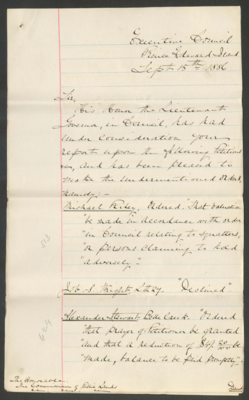 Executive Council
Prince Edward Island
Sept 15th 1886
Sir,
His Honor the Lieutenant
Governor, in Council, has had
under Consideration your
report upon the following Petitions
and has been pleased to
make the undermentioned orders,
namely:-
Michael Riley, Ordered that
"be made in accordance with order
"in Council relating to squatters,
"or persons claiming to hold
"adversely."
Jas. S. Lot 27. "Declined"
Alexander Stewart, "Ordered
that prayer of Petitioner be granted
"and that a reduction of be
"made, balance to be paid promptly"
The Honorable
The Commissioner of Public Lands